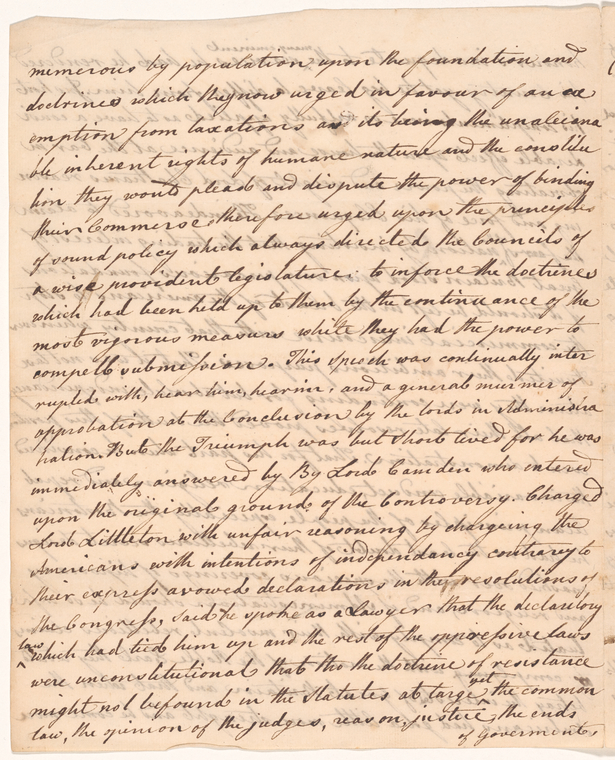 numerous by population upon the foundation and
doctrines which they now urged in favour of an ex
emption from taxations and its being the unaleiana
ble inherent rights of humane nature and the constitu
tion they would plead and dispute the power of binding
their Commerse therefore urged upon the principles
of sound policy which always directed the Councils of
a wise provident legislature: to inforce the doctrines
which had been held up to them by the continuance of the
most vigorous measurs while they had the power to
compell submission. This speech was continually inter
rupted with, hear him, hear him, and a general murmer of
approbation at the Conclusion by the lords in Administra
tration. But the Triumph was but short lived for he was
immediately answered by By Lord Camden who entered
upon the original ground of the Controversy. Charged
Lord Littleton with unfair reasoning by chargeing the
Americans with intentions of independancy contrary to
their express avowed declarations in they resolutions of
the Congress, said he spoke as a Lawyer that the declaritory
laws which had tied him up and the rest of the oppressive laws
were unconstitutional that tho the doctrine of resistance
might not be found in the Statutes at large yet the common
law, the opinion of the judges, reason, justice, the ends
of Goverments,